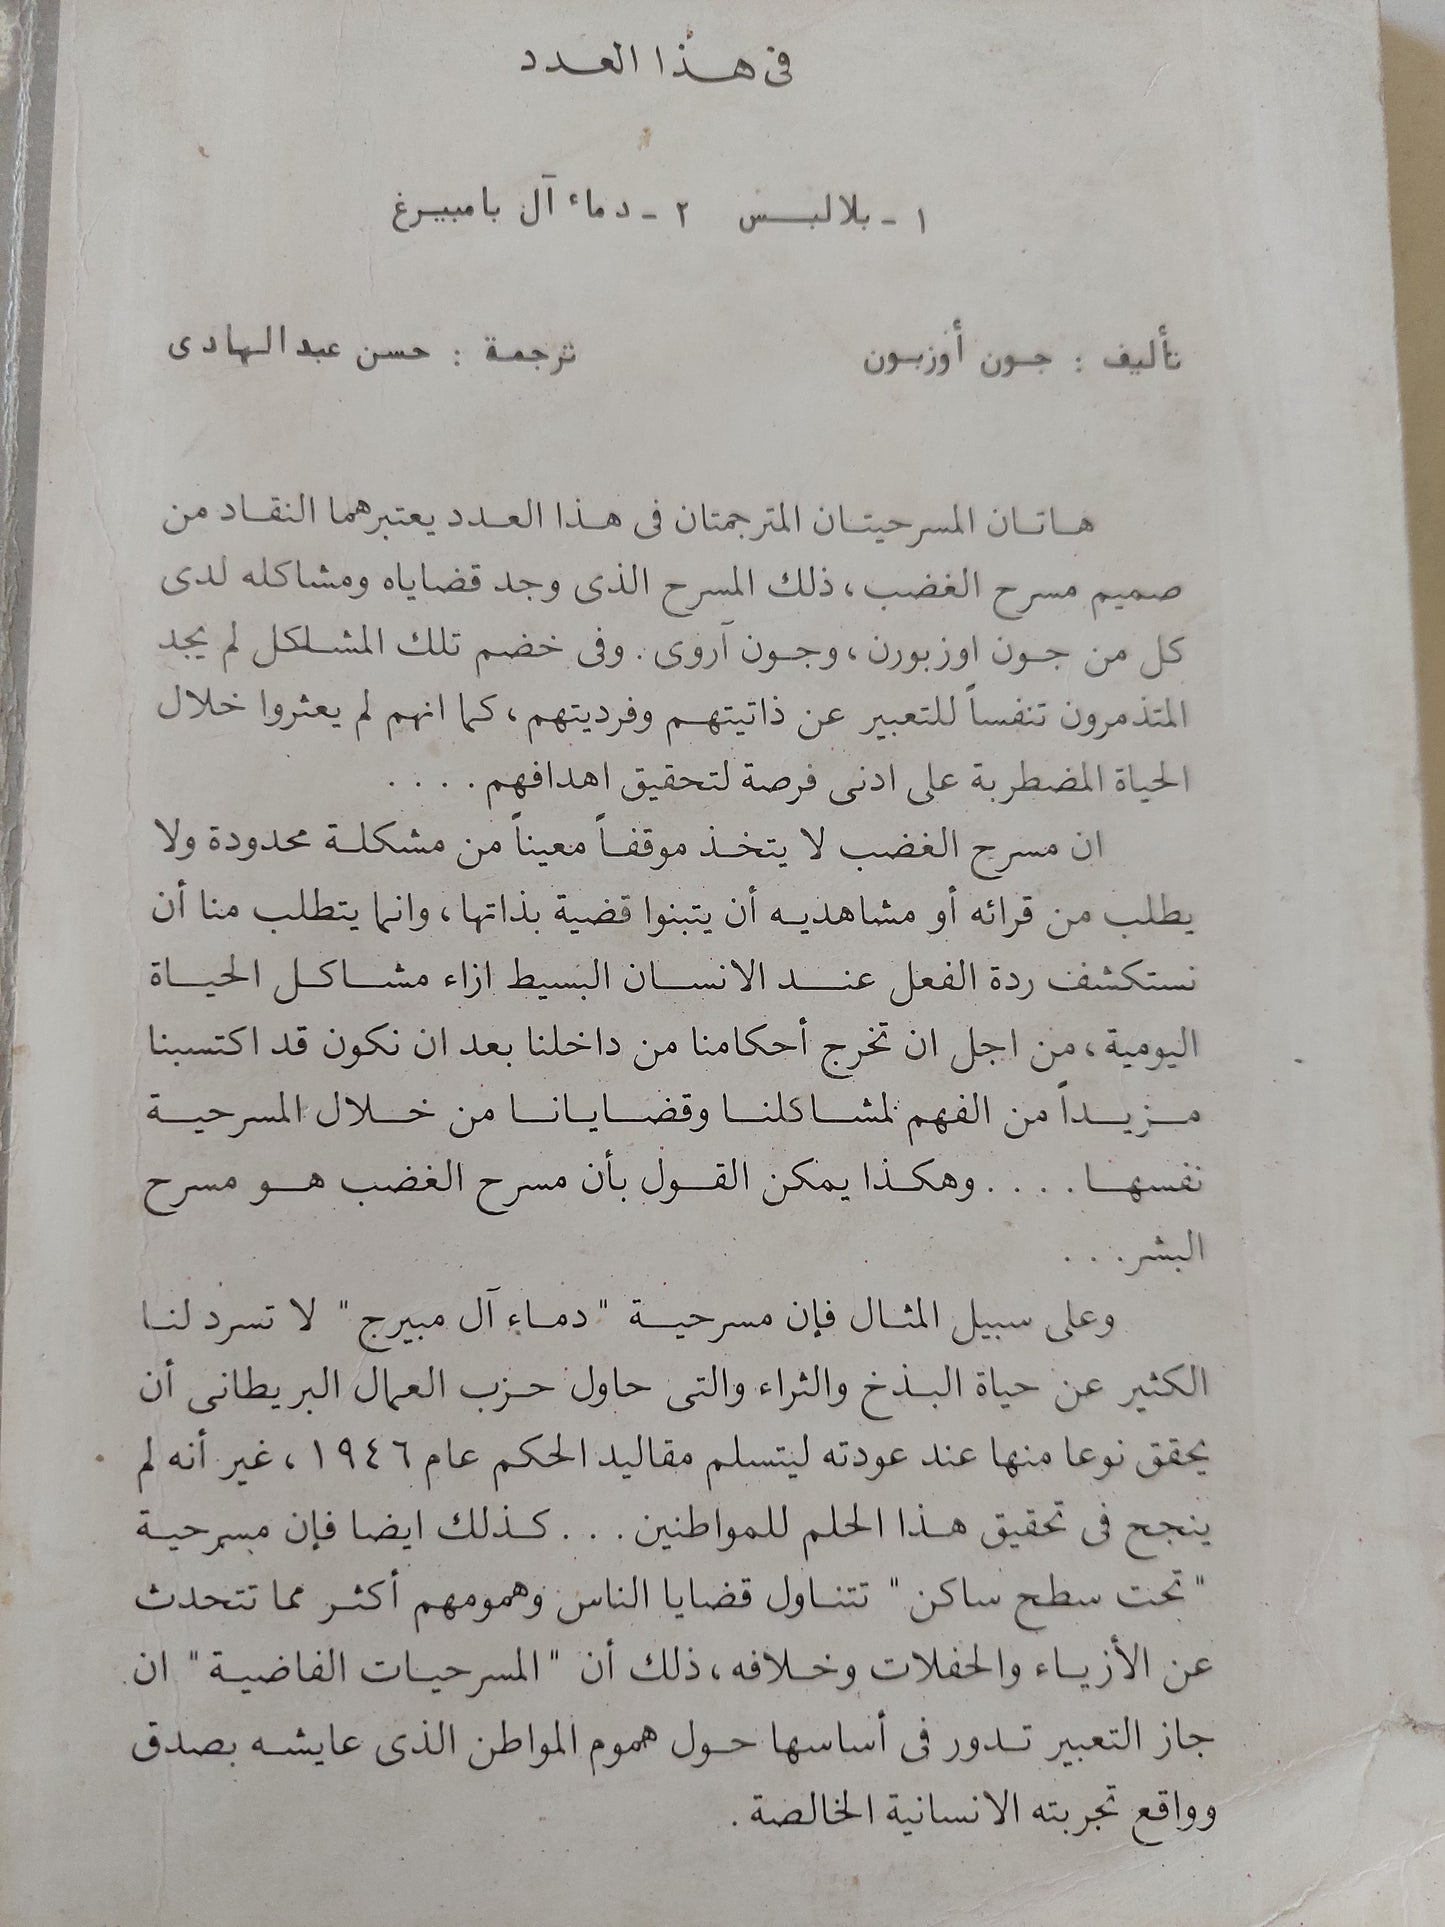 فى هـذا العـدد
١ - بلالبس ٢ - دماء آل بامبيرغ
تأليف : جـون أوزبـون
ترجمـة : حسـن عبد الهادى
هـاتـان المسرحيتـان المترجمتان فى هـذا العـدد يعتبرهما النقـاد من
صميم مسرح الغضب، ذلك المسرح الذى وجد قضاياه ومشاكله لدى
كل من جـون اوزبورن، وجـون آروى . وفى خضم تلك المشلكل لم يجد
المتذمرون تنفساً للتعبير عن ذاتيتهـم وفرديتهم، كما انهم لم يعثروا خلال
الحياة المضطربة على ادنى فرصة لتحقيق اهدافهم . . . .
ان مسرح الغضب لا يتخـذ موقفـاً معيناً من مشكلـة محدودة ولا
يطلب من قرائه أو مشاهديـه أن يتبنوا قضية بذاتها، وانما يتطلب منا أن
نستكشف ردة الفعل عنـد الانسـان البسيط ازاء مشـاكـل الحيـاة
اليومية، من اجل ان تخرج أحكامنا من داخلنا بعد ان نكون قد اكتسبنا
مـزيـداً من الفهم لمشـاكلنـا وقضـايـانـا من خـلال المسرحيـة
نفسهـا . . . . وهكـذا يمكن القـول بأن مسرح الغضب هـو مسرح
البشر. . .
وعلى سبيل المثـال فإن مسرحيـة " دمـاء آل مبيرج " لا تسرد لنـا
الكثير عن حياة البـذخ والثراء والتى حاول حـزب العمال البريطانى أن
يحقق نوعا منها عند عودته ليتسلم مقاليد الحكم عام ١٩٤٦، غير أنه لم
ينجح فى تحقيق هـذا الحلم للمواطنين . . . كـذلك ايضا فإن مسرحيـة
" تحت سطح ساكن " تتنـاول قضايا الناس وهمومهم أكثـر مما تتحدث
عن الأزيـاء والحفلات وخـلافه، ذلك أن " المسرحيـات الفاضيـة " ان
جاز التعبير تـدور فى أساسها حـول هموم المواطن الذى عايشـه بصدق
وواقع تجربته الانسانية الخالصة .